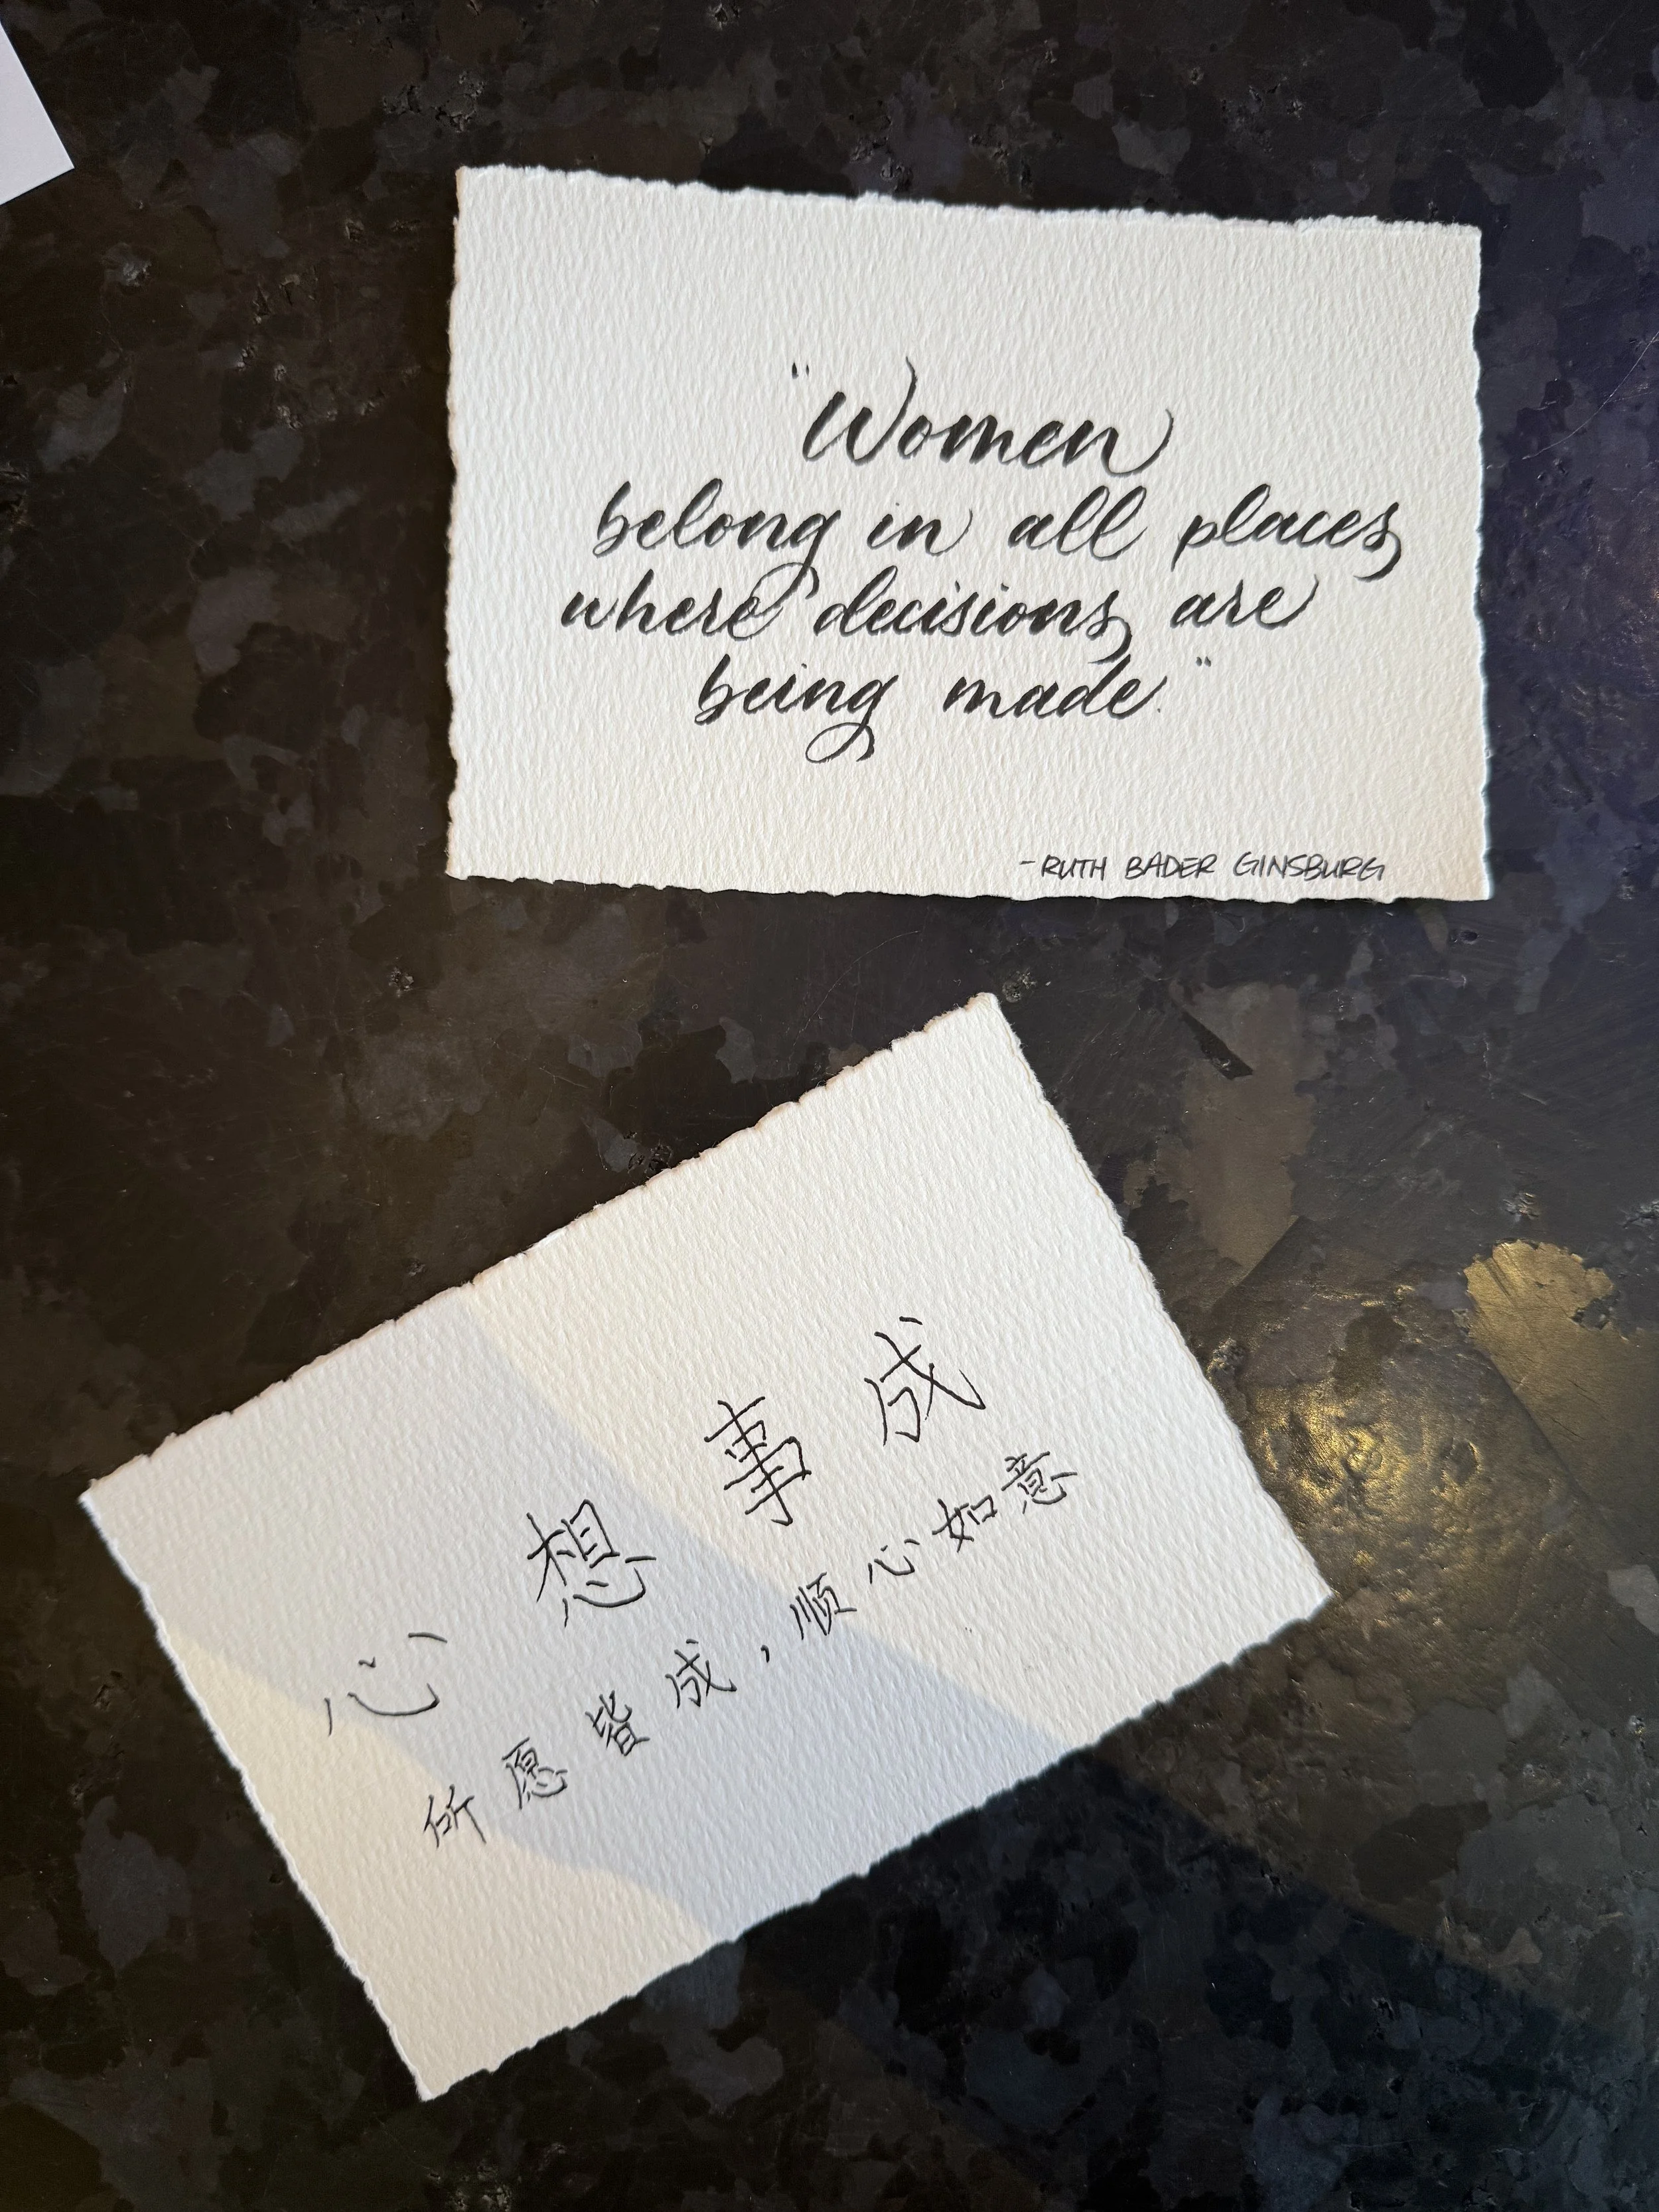 "Women
belong in all places
where decisions are
being made."
-RUTH BADER GINSBURG
心想事成
所愿皆成，顺心如意